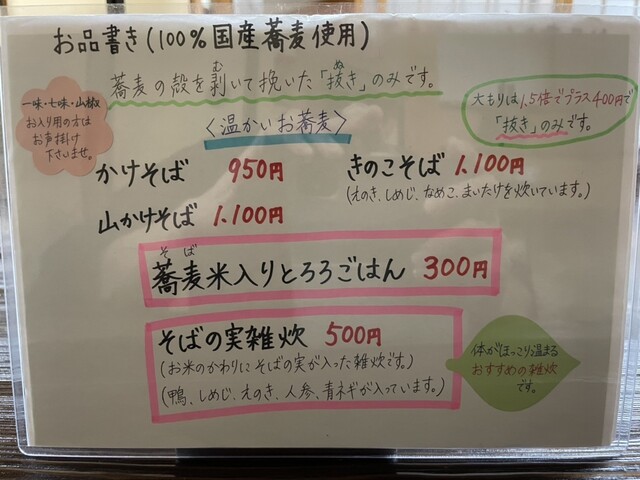 お品書き(100%国産蕎麦使用)
蕎麦の殻を剥いて挽いた「抜き」のみです。
む
ぬ
一味・七味・山椒
お入り用の方は
お声掛け
下さいませ。
大もりは1.5倍でプラス400円で
「抜き」のみです。
〈温かいお蕎麦〉
かけそば 950円
きのこそば 1.100円
(えのき、しめじ、なめこ、まいたけを炊いています。)
山かけそば 1.100円
そば
蕎麦米入りとろろごはん 300円
そばの実雑炊 500円
(お米のかわりにそばの実が入った雑炊です。)
(鴨、しめじ、えのき、人参、青ネギが入っています。)
体がほっこり温まる
おすすめの雑炊
です。